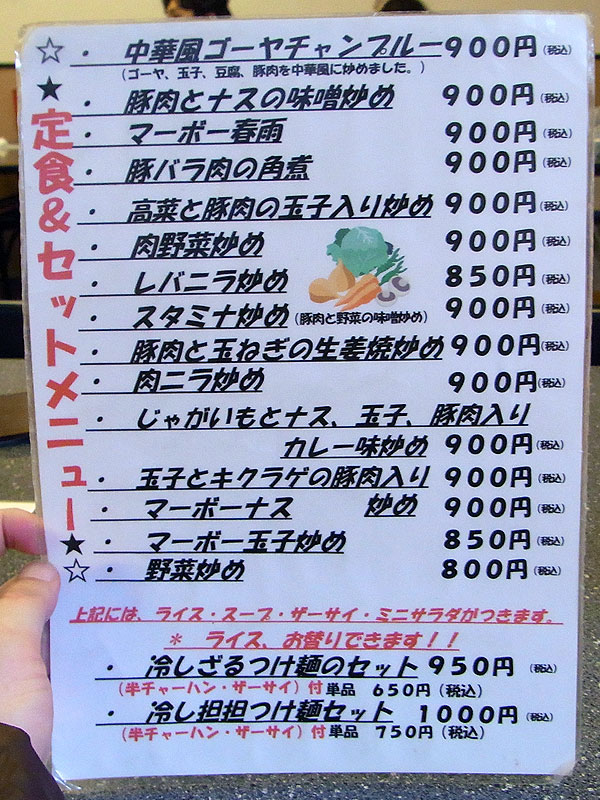 ☆・ 中華風ゴーヤチャンプルー 900円(税込)
(ゴーヤ、玉子、豆腐、豚肉を中華風に炒めました。)
★定食&セットメニュー★☆
・ 豚肉とナスの味噌炒め 900円(税込)
・ マーボー春雨 900円(税込)
・ 豚バラ肉の角煮 900円(税込)
・ 高菜と豚肉の玉子入り炒め 900円(税込)
・ 肉野菜炒め 900円(税込)
・ レバニラ炒め 850円(税込)
・ スタミナ炒め (豚肉と野菜の味噌炒め) 900円(税込)
・ 豚肉と玉ねぎの生姜焼炒め 900円(税込)
・ 肉ニラ炒め 900円(税込)
・ じゃがいもとナス、玉子、豚肉入り
カレー味炒め 900円(税込)
・ 玉子とキクラゲの豚肉入り 900円(税込)
・ マーボーナス 炒め 900円(税込)
・ マーボー玉子炒め 850円(税込)
・ 野菜炒め 800円(税込)
上記には、ライス・スープ・ザーサイ・ミニサラダがつきます。
* ライス、お替りできます!!
・ 冷しざるつけ麺のセット 950円 (税込)
(半チャーハン・ザーサイ)付 単品 650円(税込)
・ 冷し担担つけ麺セット 1000円(税込)
(半チャーハン・ザーサイ)付 単品 750円(税込)